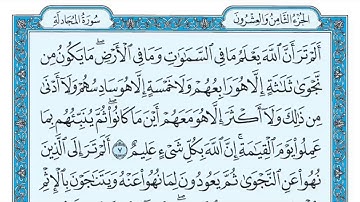 الجزء الثامن والعشرون
سورة المجادلة
أَلَمْ تَرَ أَنَّ ٱللَّهَ يَعْلَمُ مَا فِي ٱلسَّمَٰوَٰتِ وَمَا فِي ٱلْأَرْضِ ۖ مَا يَكُونُ مِن
نَّجْوَىٰ ثَلَٰثَةٍ إِلَّا هُوَ رَابِعُهُمْ وَلَا خَمْسَةٍ إِلَّا هُوَ سَادِسُهُمْ وَلَآ أَدْنَىٰ
مِن ذَٰلِكَ وَلَآ أَكْثَرَ إِلَّا هُوَ مَعَهُمْ أَيْنَ مَا كَانُوا۟ ۖ ثُمَّ يُنَبِّئُهُم بِمَا
عَمِلُوا۟ يَوْمَ ٱلْقِيَٰمَةِ ۚ إِنَّ ٱللَّهَ بِكُلِّ شَيْءٍ عَلِيمٌ ٧ أَلَمْ تَرَ إِلَى ٱلَّذِينَ
نُهُوا۟ عَنِ ٱلنَّجْوَىٰ ثُمَّ يَعُودُونَ لِمَا نُهُوا۟ عَنْهُ وَيَتَنَٰجَوْنَ بِٱلْإِثْمِ